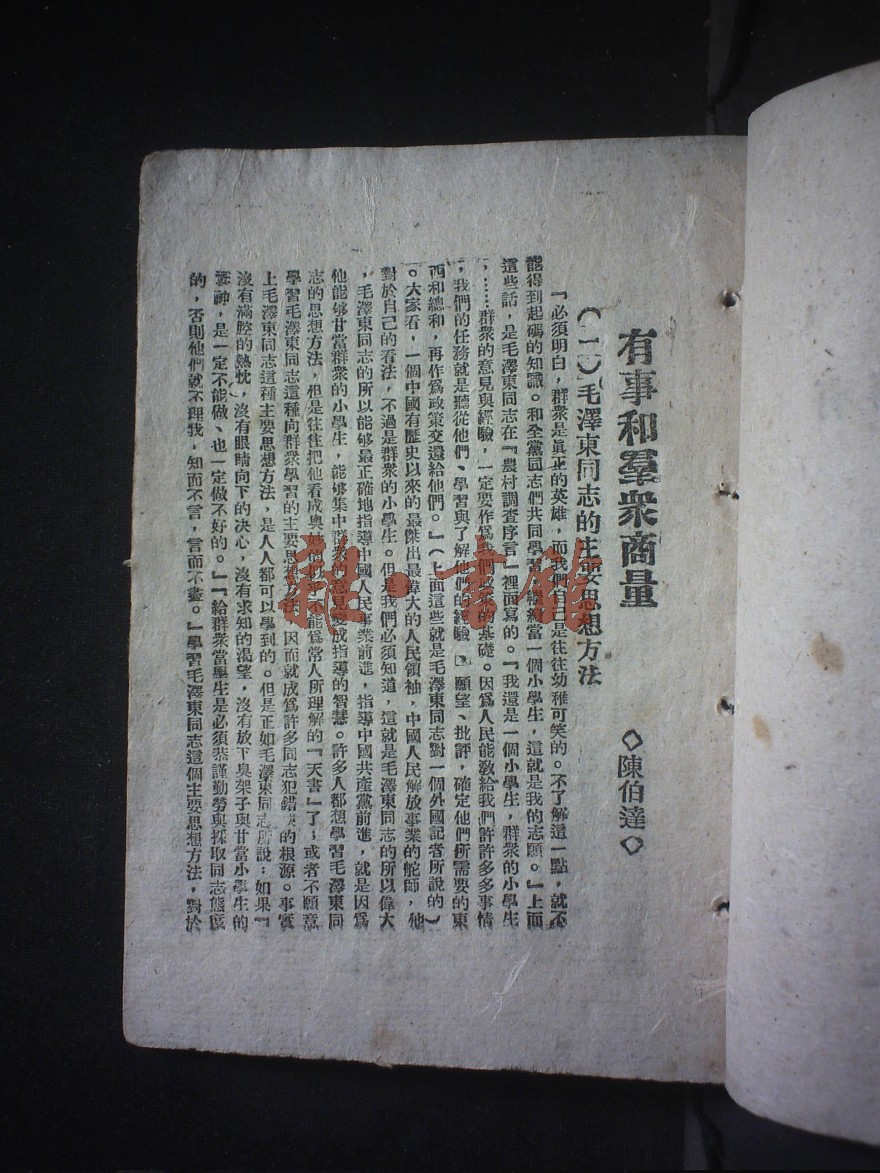 有事和羣衆商量
◇陳伯達◇
（一）毛澤東同志的主要思想方法
『必須明白，群衆是眞正的英雄，而我們自己是往往幼稚可笑的。不了解這一點，就不
能得到起碼的知識。和全黨同志們共同學習，繼續當一個小學生，這就是我的志願。』上面
這些話，是毛澤東同志在『農村調查序言』裡面寫的。『我還是一個小學生，群衆的小學生
，……群衆的意見與經驗，一定要作爲我們政策的基礎。因爲人民能敎給我們許許多多事情
，我們的任務就是聽從他們、學習與了解他們的經驗、願望、批評，確定他們所需要的東
西和總和，再作爲政策交還給他們。』（上面這些就是毛澤東同志對一個外國記者所說的）
。大家看，一個中國有歷史以來的最傑出最偉大的人民領袖，中國人民解放事業的舵師，他
對於自己的看法，不過是群衆的小學生。但是我們必須知道，這就是毛澤東同志的所以偉大
，毛澤東同志的所以能够最正確地指導中國人民事業前進，指導中國共產黨前進，就是因爲
他能够甘當群衆的小學生，能够集中群衆的意見變成指導的智慧。許多人都想學習毛澤東同
志的思想方法，但是往往把他看成奧妙的似乎不能爲常人所理解的『天書』了；或者不願意
學習毛澤東同志這種向群衆學習的主要思想方法，因而就成爲許多同志犯錯誤的根源。事實
上毛澤東同志這種主要思想方法，是人人都可以學到的。但是正如毛澤東同志所說：如果『
沒有滿腔的熱忱，沒有眼睛向下的决心，沒有求知的渴望，沒有放下臭架子與甘當小學生的
精神，是一定不能做、也一定做不好的。』『給群衆當學生是必須恭謹勤勞與採取同志態度
的，否則他們就不理我，知而不言，言而不盡。』學習毛澤東同志這個主要思想方法，對於